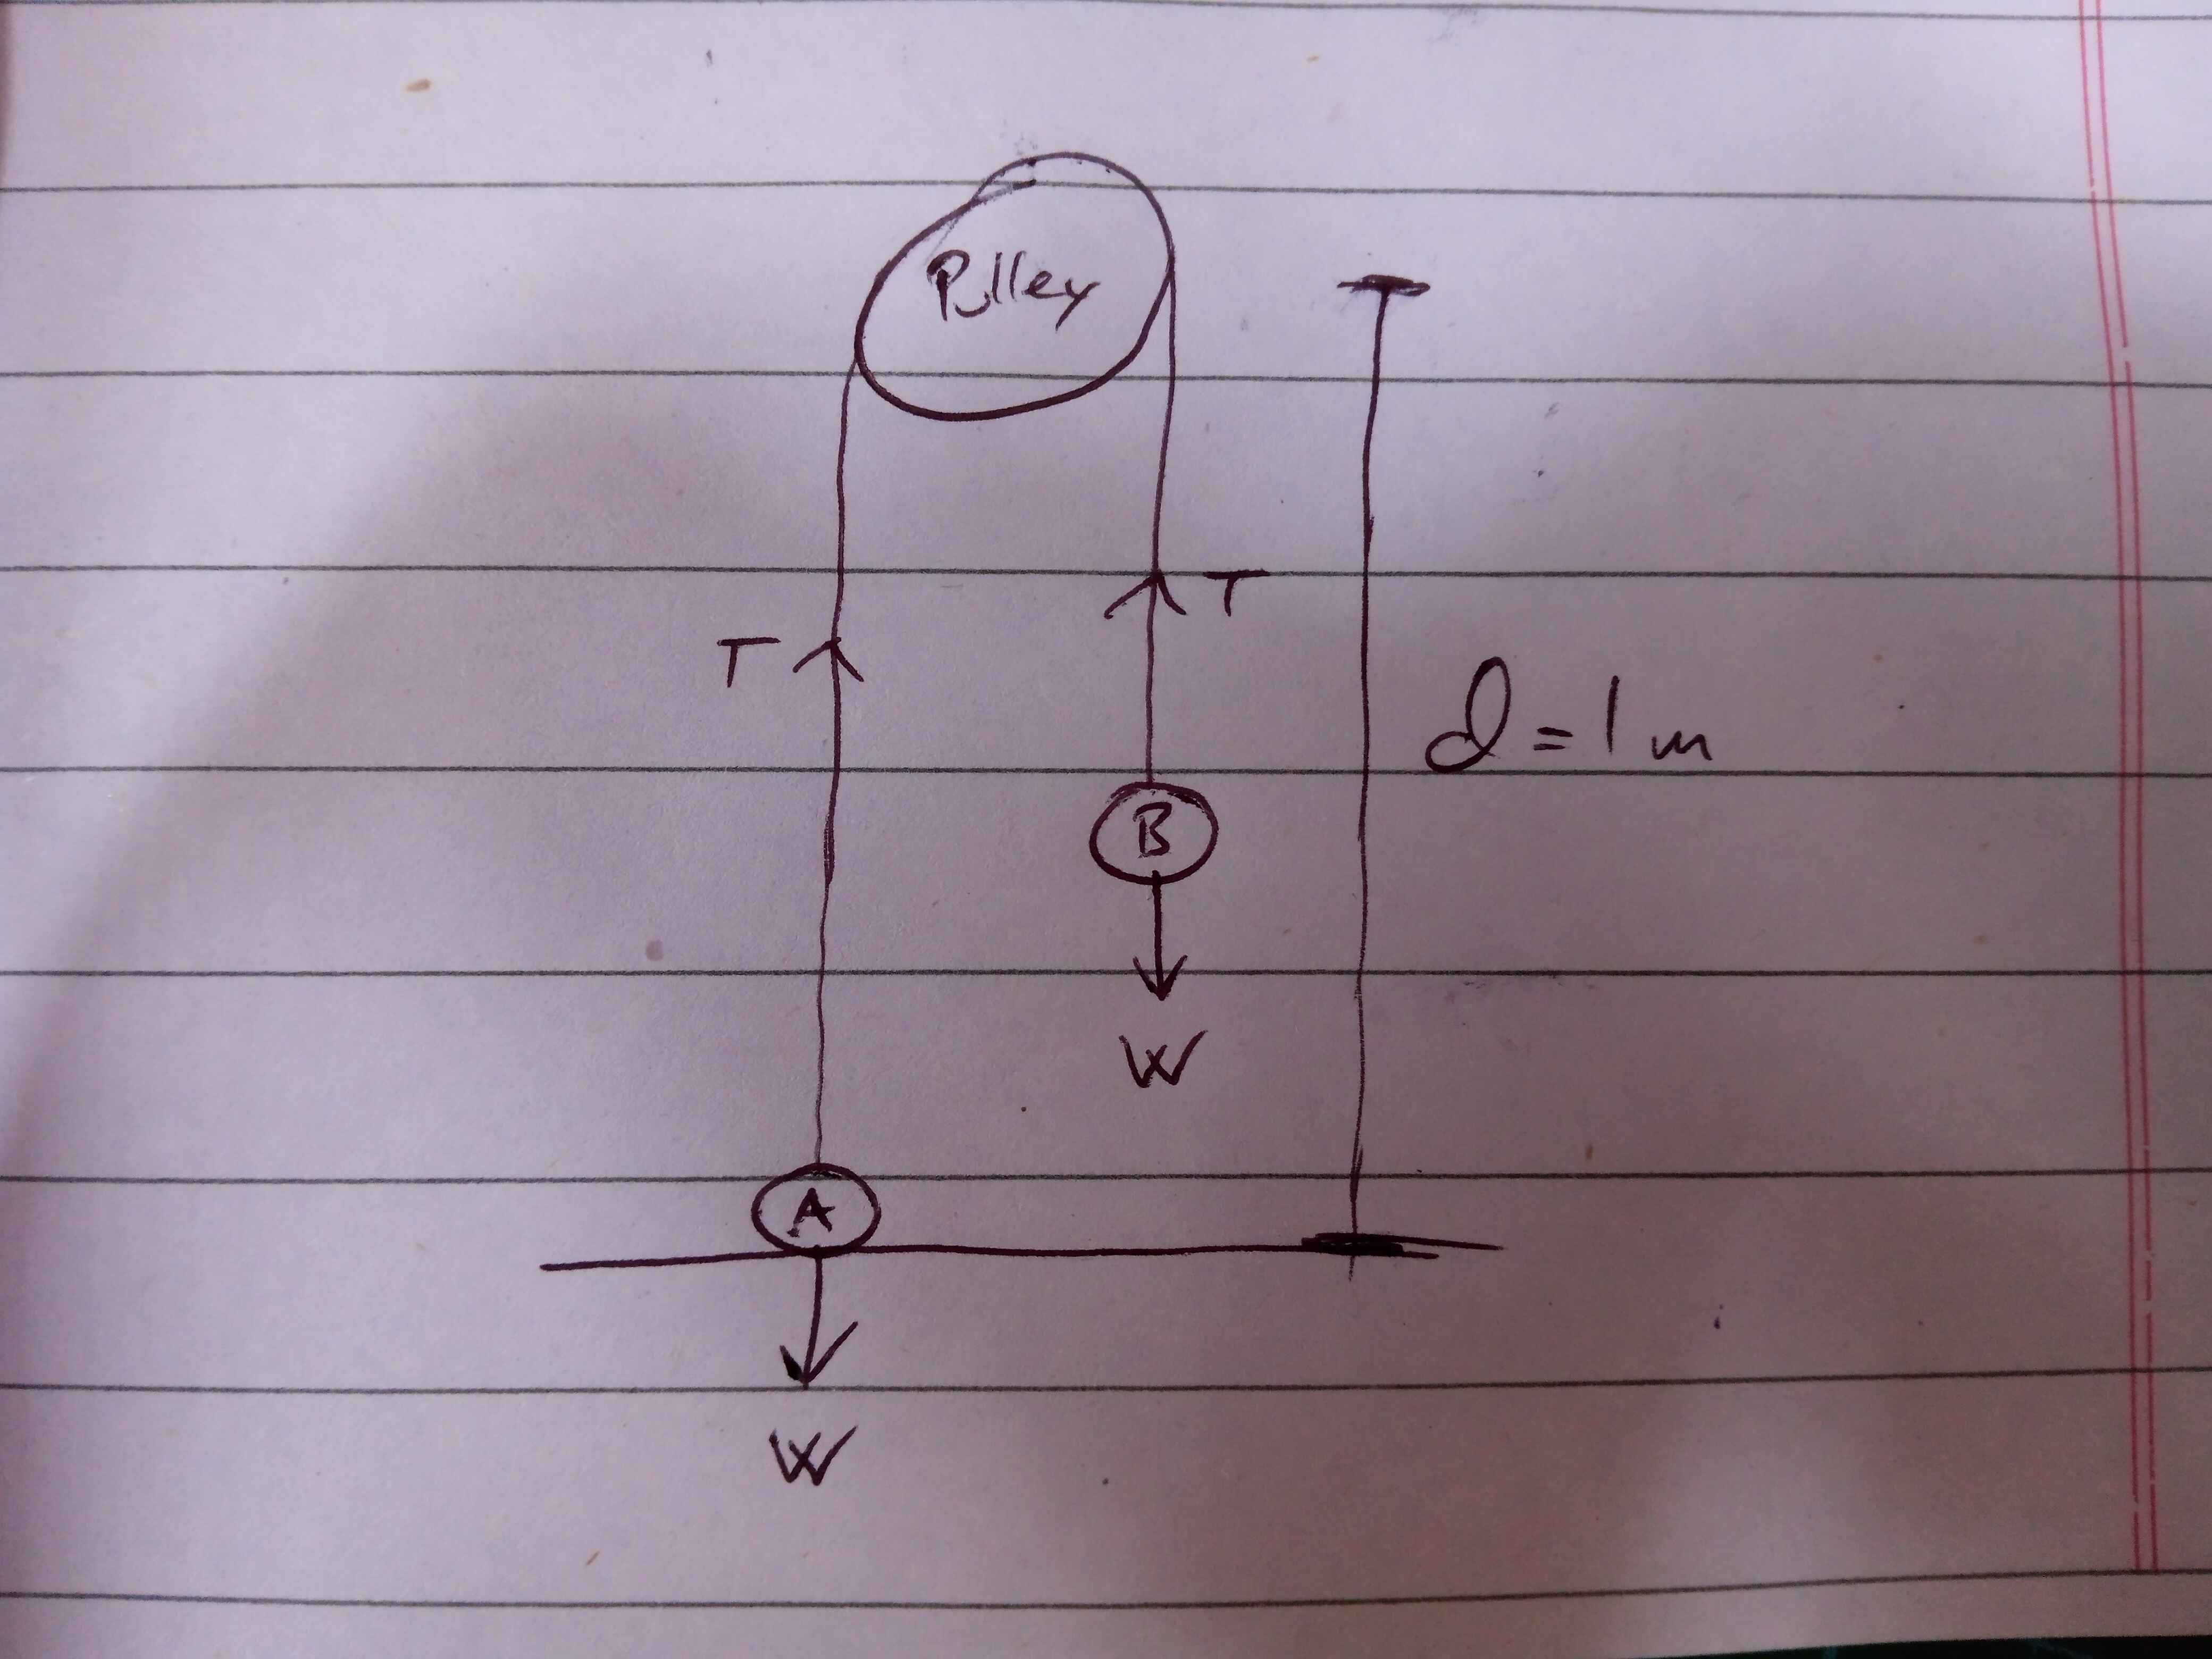 Pulley
T
T
d = 1 m
B
W
A
W